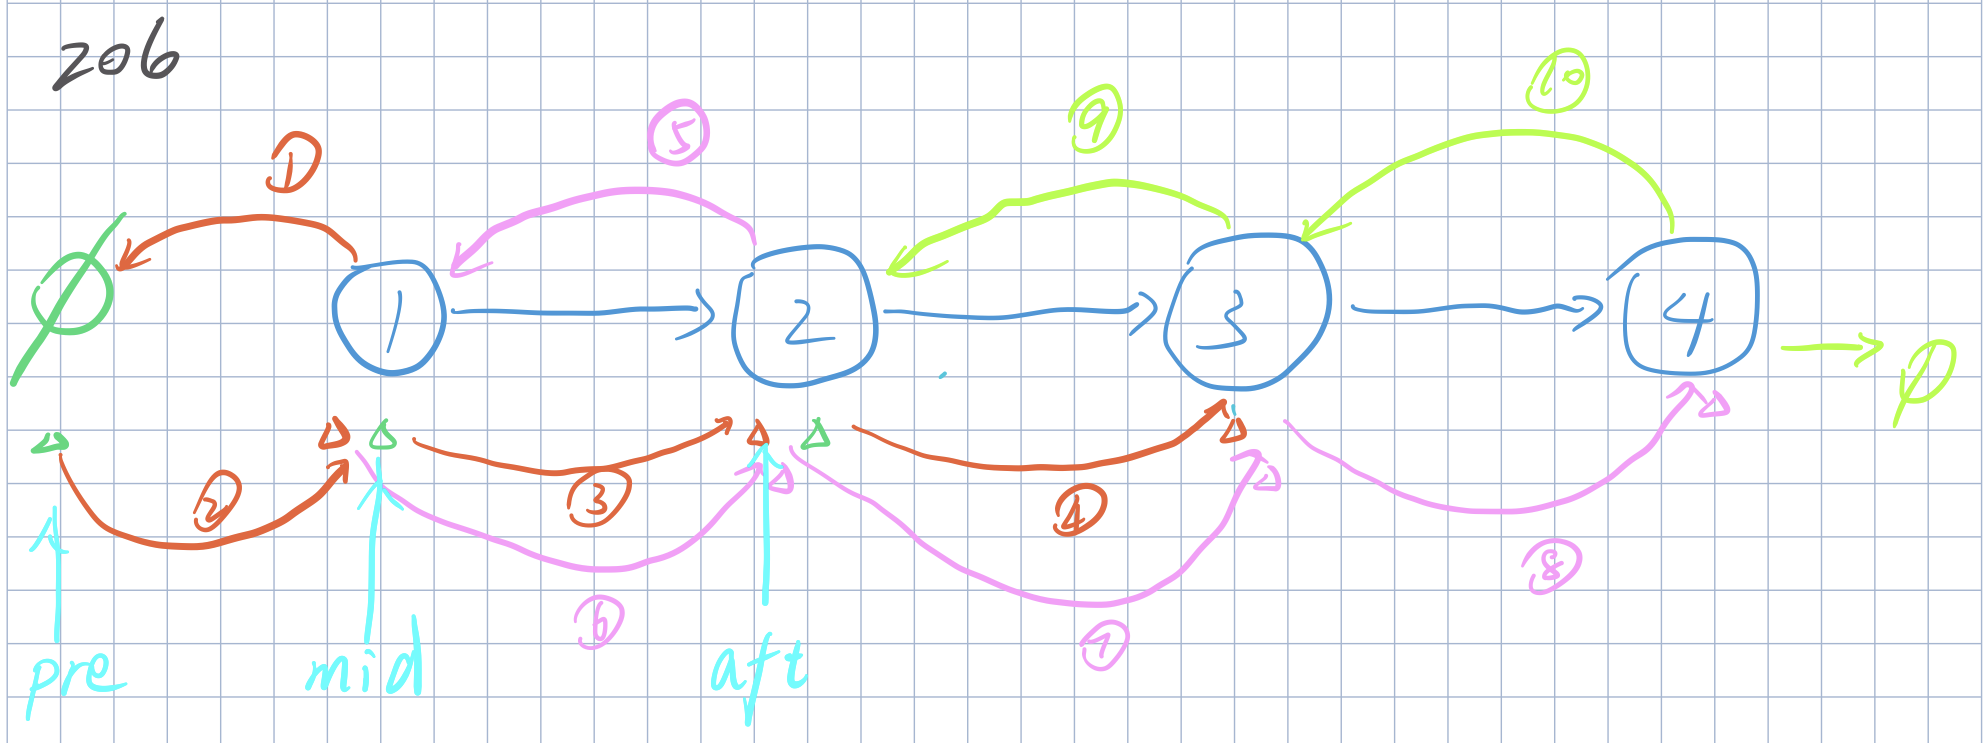 206
⑩
⑨
⑤
①
∅ 1 2 3 4 ∅
② ③ ④
⑧
⑥ ⑦
pre mid aft